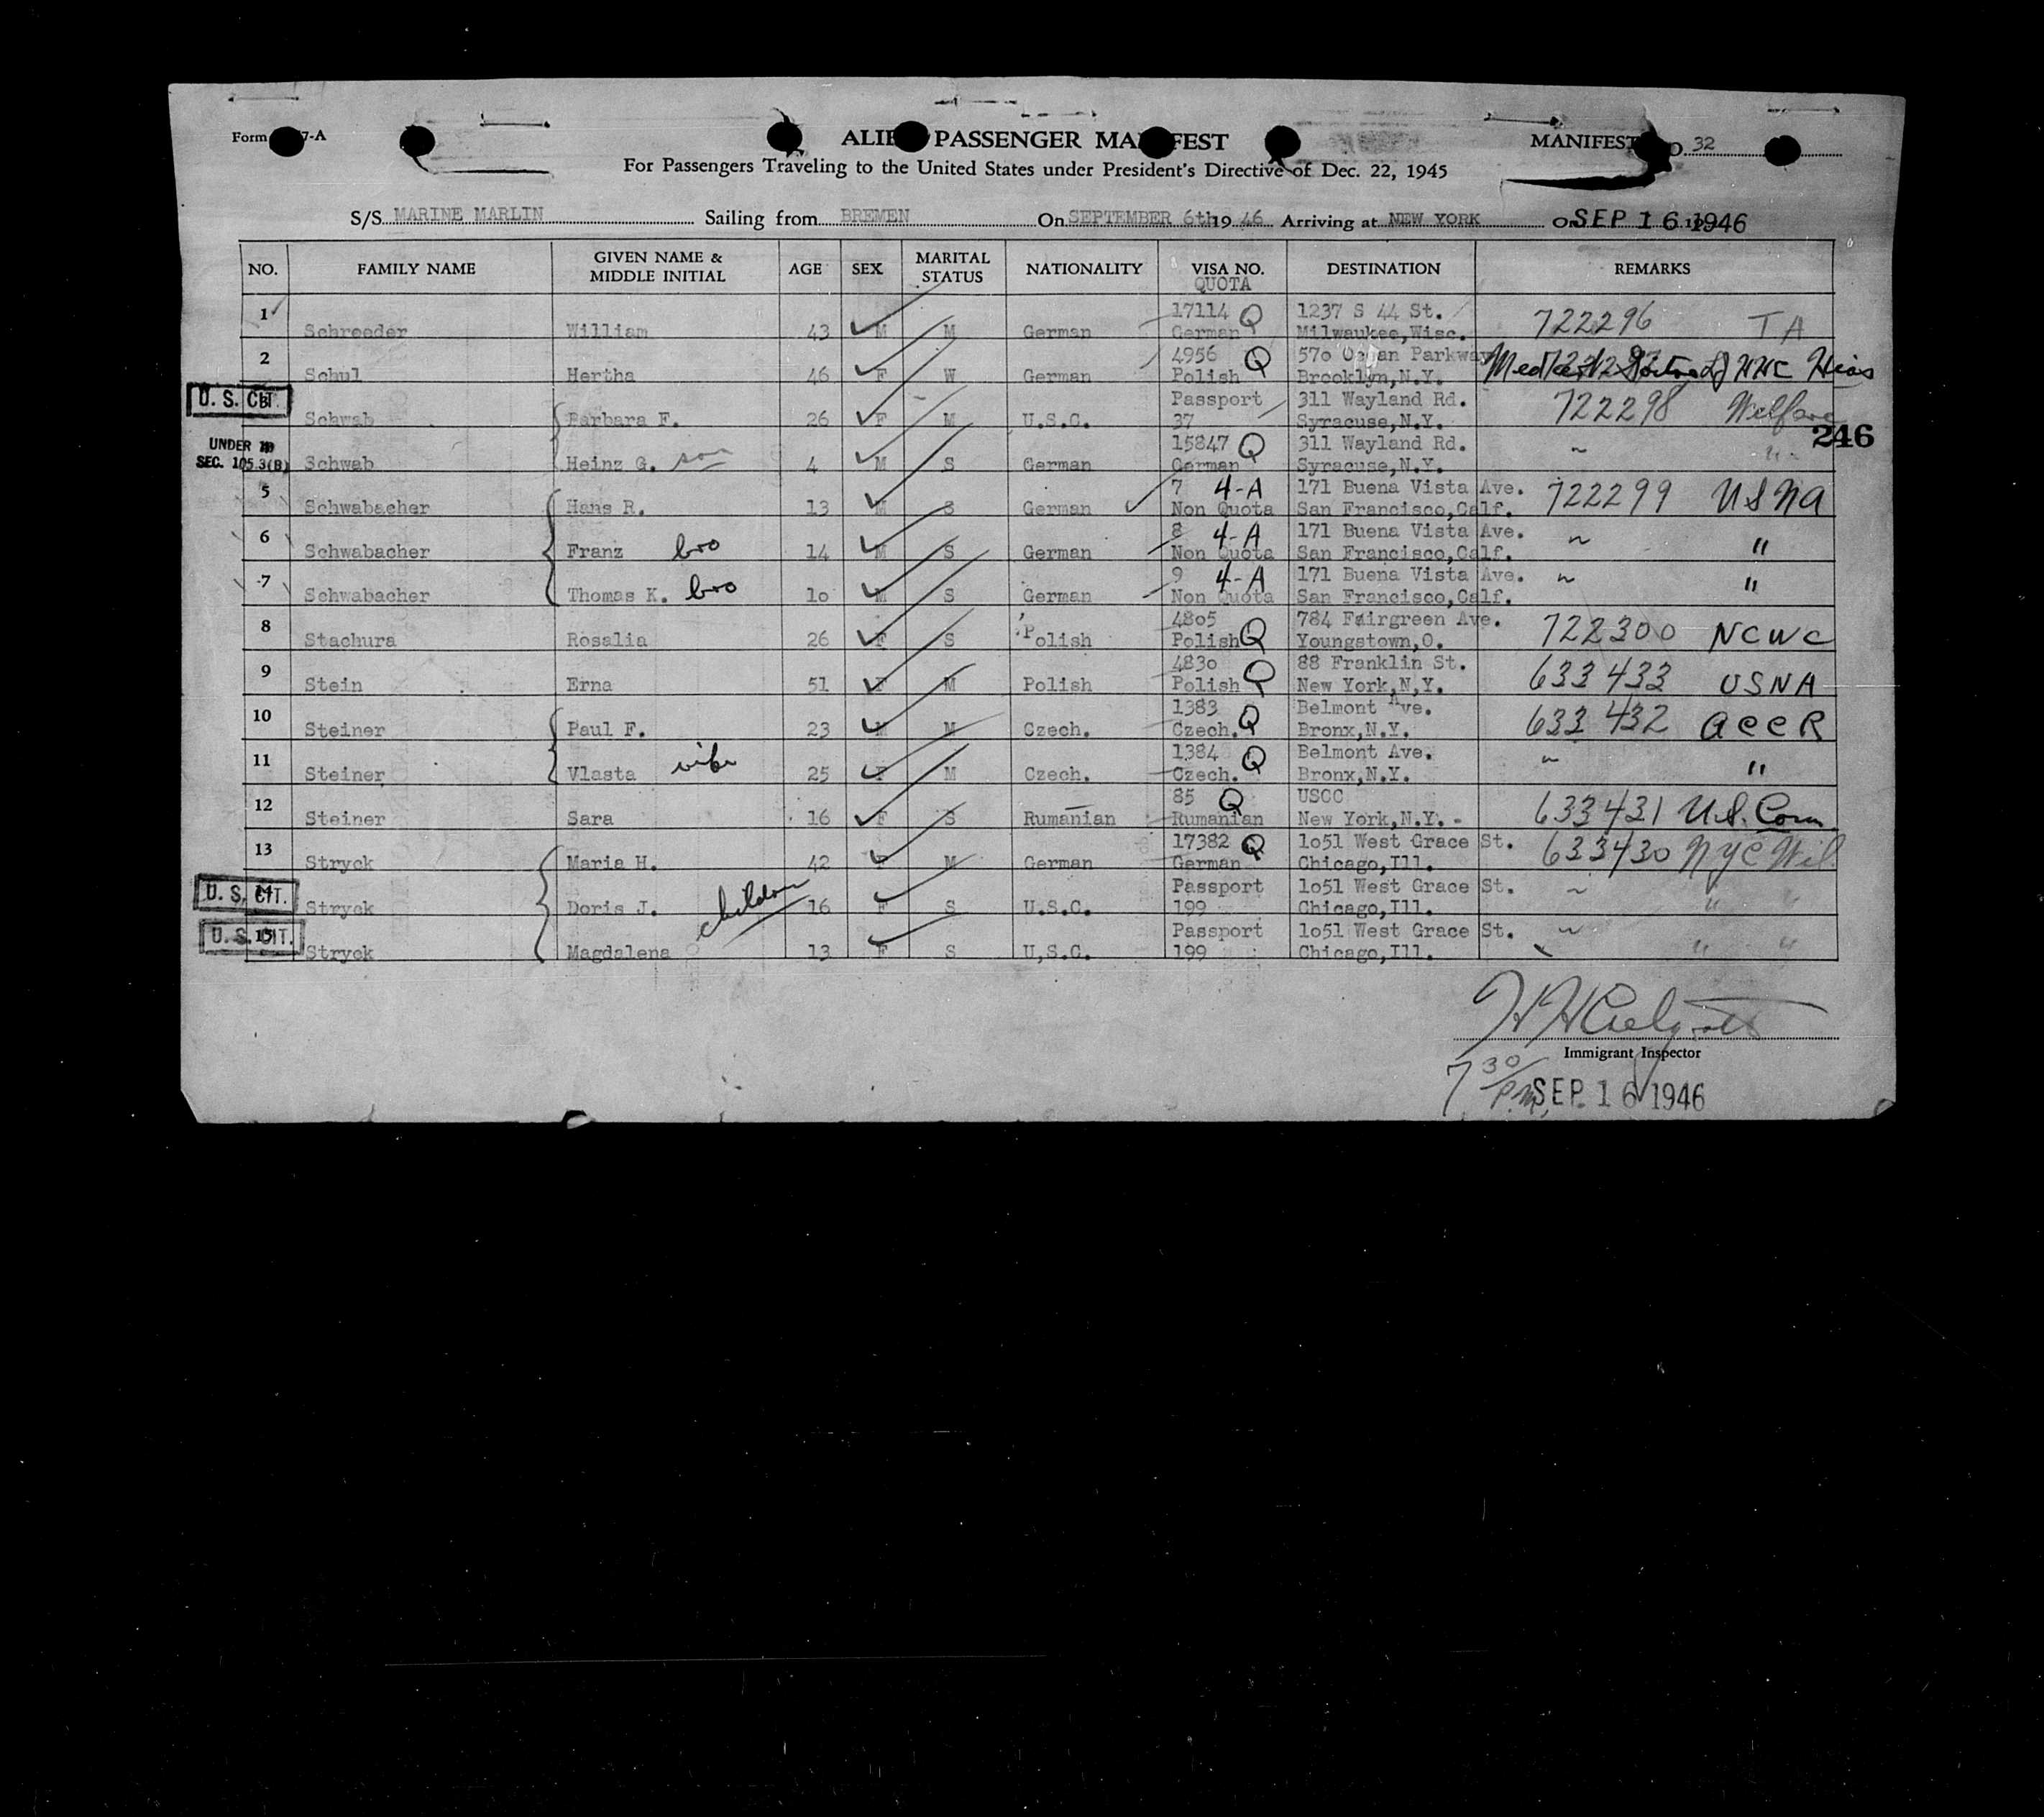 Form 7-A
ALIEN PASSENGER MANIFEST
MANIFEST NO. 32
For Passengers Traveling to the United States under President's Directive of Dec. 22, 1945
S/S MARINE MARLIN Sailing from BREMEN On SEPTEMBER 6th 19 46 Arriving at NEW YORK On SEP 16 1946
NO. FAMILY NAME GIVEN NAME & MIDDLE INITIAL AGE SEX MARITAL STATUS NATIONALITY VISA NO. QUOTA DESTINATION REMARKS
1 Schroeder William 43 M M German 17114 Q German 1237 S 44 St. Milwaukee,Wisc. 722296 T A
2 Schul Hertha 46 F W German 4956 Q Polish 570 Ocean Parkway Brooklyn,N.Y. Hias
U. S. CIT. 3 Schwab Barbara F. 26 F M U.S.C. Passport 37 311 Wayland Rd. Syracuse,N.Y. 722298 Welfare
246
UNDER SEC. 105.3(B) Schwab Heinz G. son 4 M S German 15847 Q German 311 Wayland Rd. Syracuse,N.Y. ~ " "
5 Schwabacher Hans R. 13 M S German 7 4-A Non Quota 171 Buena Vista Ave. San Francisco,Calf. 722299 USNA
6 Schwabacher Franz bro 14 M S German 8 4-A Non Quota 171 Buena Vista Ave. San Francisco,Calf. ~ "
7 Schwabacher Thomas K. bro 1o M S German 9 4-A Non Quota 171 Buena Vista Ave. San Francisco,Calf. ~ "
8 Stachura Rosalia 26 F S Polish 48o5 Polish Q 784 Fairgreen Ave. Youngstown,O. 722300 NCWC
9 Stein Erna 51 F M Polish 483o Polish Q 88 Franklin St. New York,N,Y. 633433 USNA
10 Steiner Paul F. 23 M M Czech. 1383 Czech. Q Belmont Ave. Bronx,N.Y. 633432 ACCR
11 Steiner Vlasta wife 25 F M Czech. 1384 Czech. Q Belmont Ave. Bronx,N.Y. ~ "
12 Steiner Sara 16 F S Rumanian 85 Q Rumanian USCC New York,N.Y. 633431 U.S. Com.
13 Stryck Maria H. 42 F M German 17382 Q German 1o51 West Grace St. Chicago,Ill. 633430 NYC Wel
U. S. CIT. 14 Stryck Doris J. children 16 F S U.S.C. Passport 199 1o51 West Grace St. Chicago,Ill. ~ " "
U. S. CIT. 15 Stryck Magdalena 13 F S U,S.C. Passport 199 1o51 West Grace St. Chicago,Ill. ~ " "
Immigrant Inspector
7 30/P.M. SEP 16 1946